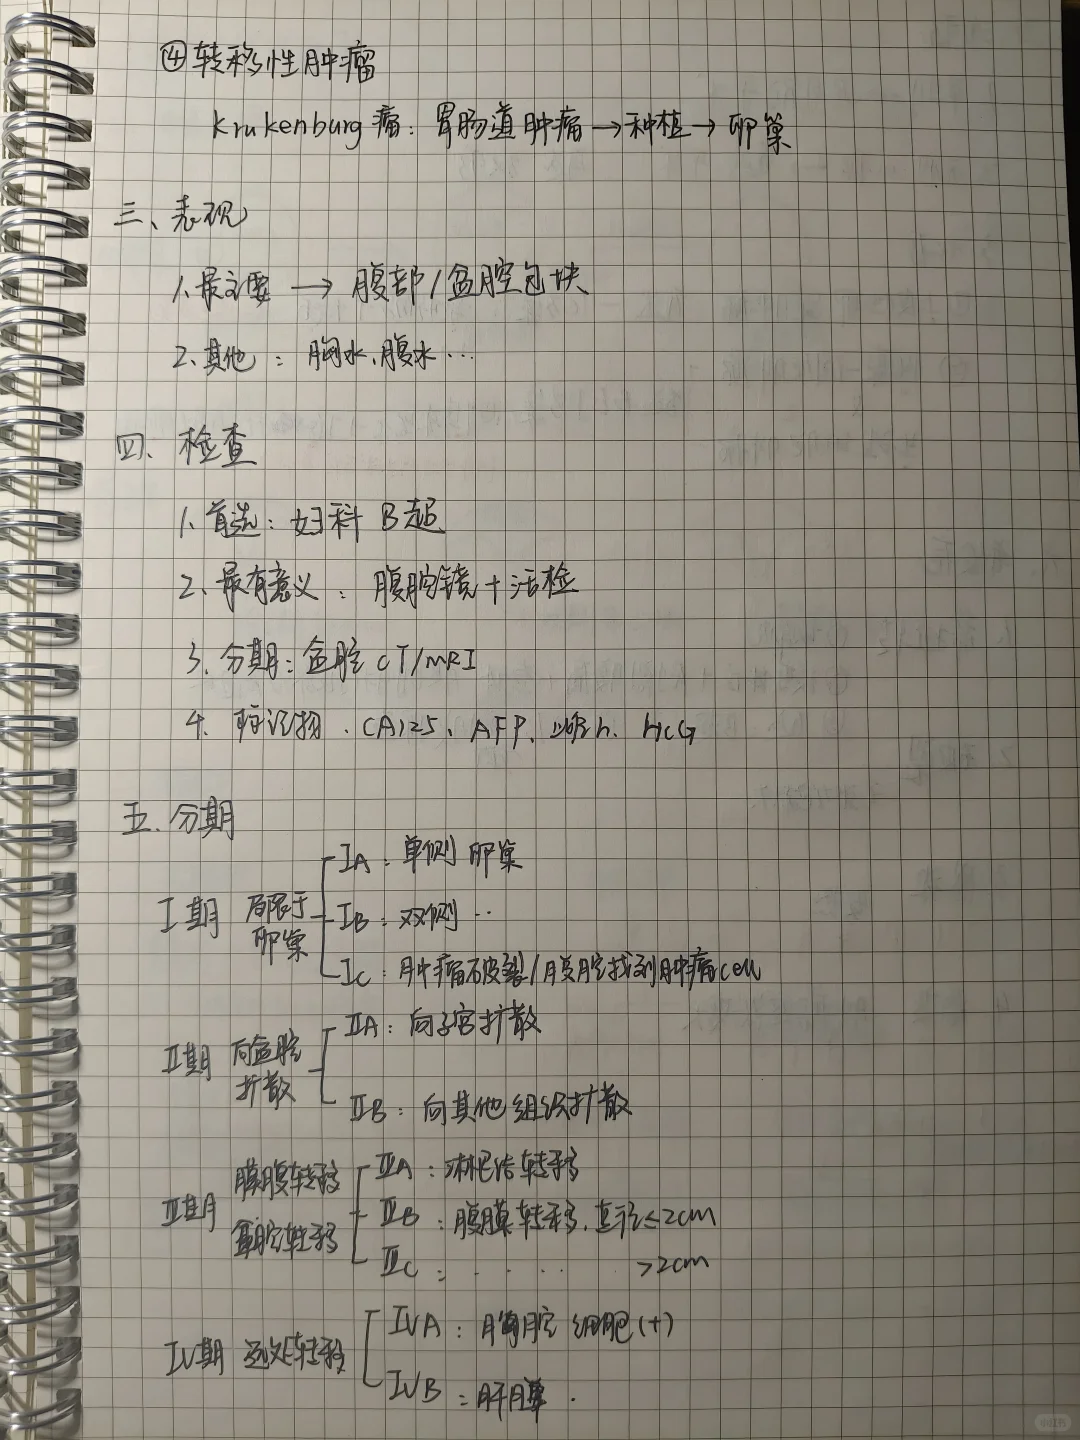 ④转移性肿瘤
Krukenburg瘤：胃肠道肿瘤→种植→卵巢
三、表现
1.最主要→腹部/盆腔包块
2.其他：胸水、腹水…
四、检查
1.首选：妇科B超
2.最有意义：腹腔镜+活检
3.分期：盆腔CT/MRI
4.标记物.CA125、AFP、HCG
五.分期
Ⅰ期 局限于卵巢
ⅠA：单侧卵巢
ⅠB：双侧··
ⅠC：肿瘤破裂/腹腔找到肿瘤cell
Ⅱ期 向盆腔扩散
ⅡA：向子宫扩散
ⅡB：向其他组织扩散
Ⅲ期 腹转移 腔转移
ⅢA：淋巴结转移
ⅢB：腹膜转移.直径≤2cm
ⅢC：···· >2cm
Ⅳ期 远处转移
ⅣA：胸腔细胞(+)
ⅣB：肝
小红书